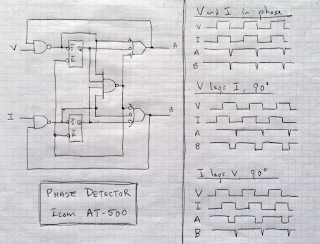 V and I in phase
V
I
A
B
V lags I, 90°
V
I
A
B
I lags V, 90°
V
I
A
B
V
A
I
B
PHASE DETECTOR
Icom AT-500